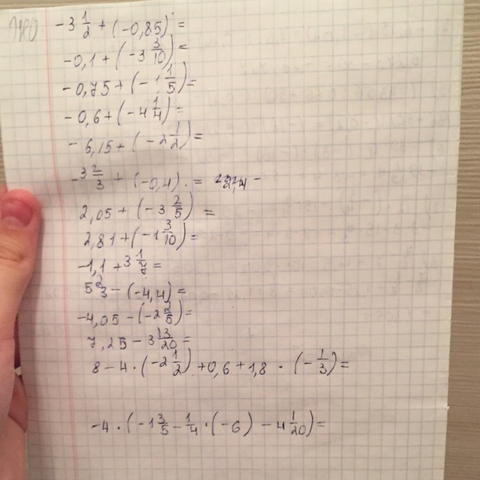 -3 1/2 + (-0,85) =
-0,1 + (-3 3/10) =
-0,75 + (-1 1/5) =
-0,6 + (-4 1/4) =
-6,15 + (-2 1/2) =
-3 2/3 + (-0,4) =
2,05 + (-3 2/5) =
2,81 + (-1 3/10) =
-1,1 + 3 1/7 =
5 2/3 - (-4,4) =
-4,05 - (-2 3/5) =
7,25 - 3 13/20 =
8 - 4 · (-2 1/2) + 0,6 + 1,8 · (-1/3) =
-4 · (-1 3/5 - 1/4 · (-6) - 4 1/20) =